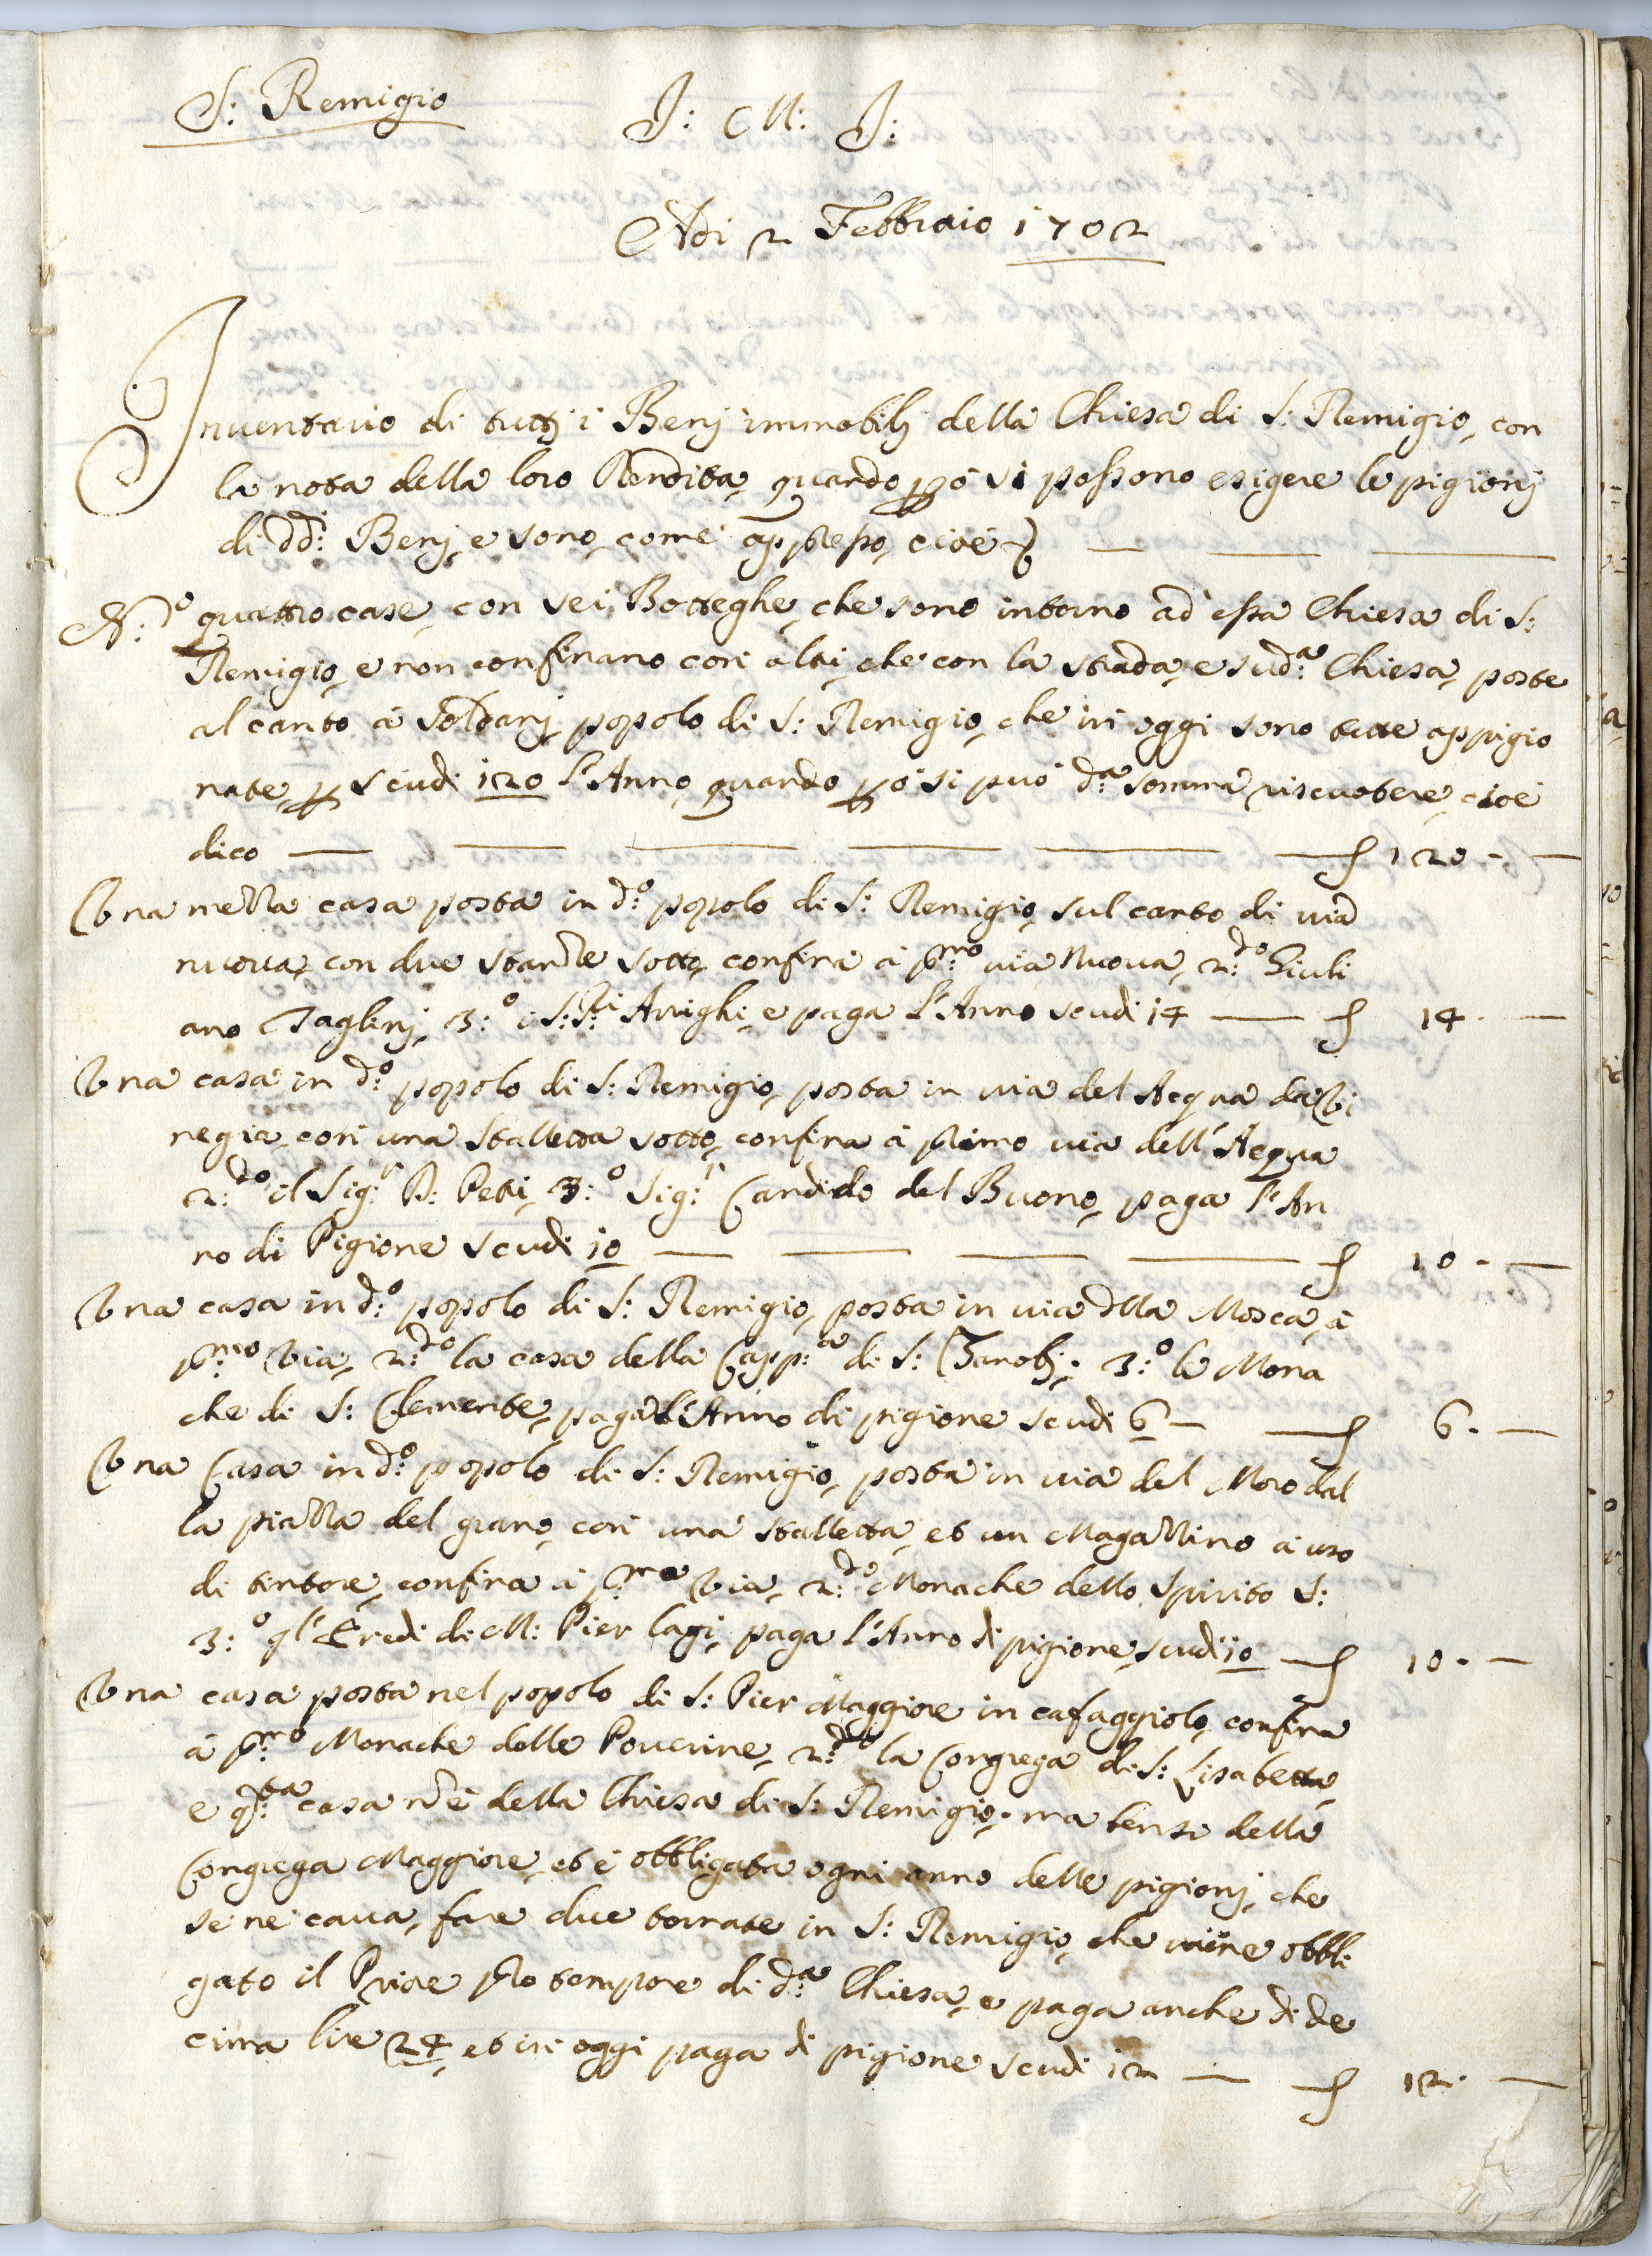 S: Remigio
J: M: J:
Adi 2 Febbraio 1702
Inventario di tutti i Benj immobilj della Chiesa di S: Remigio, con
la nota della loro Rendita, quando però si possono esigere le pigionj
di dd:i Benj, e sono, come appresso, cioè
N:o quattro case, con sei Botteghe, che sono intorno ad essa Chiesa di S:
Remigio, e non confinano con altri, che con la strada, e sud:a Chiesa, poste
al canto à Soldanj, popolo di S: Remigio, che in oggi sono tutte appigio
nate, p scudi 120 l'Anno, quando però si può d:a somma riscuotere, cioè
dico — — — — — — 120 . —
Una mezza casa posta in d:o popolo di S: Remigio, sul canto di via
nuova, con due stanze sotto, confina à p:mo via Nuova, 2:do Giuli
ano Taglinj, 3:o i S:ri Arrighi, e paga l'Anno scudi 14 — 14 . —
Una casa in d:o popolo di S: Remigio, posta in via del Acqua da Vi
negia, con una stalletta sotto, confina à primo via dell'Acqua
2:do il Sig:r P: Petri, 3:o Sig:r Candido del Buono, paga l'An
no di Pigione scudi 10 — — — — 10 . —
Una casa in d:o popolo di S: Remigio, posta in via della Mosca, à
p:mo Via, 2:do la casa della Capp:a di S: Zanobj; 3:o le Mona
che di S: Clemente, paga l'Anno di pigione scudi 6 — 6 . —
Una Casa in d:o popolo di S: Remigio, posta in via del Moro dal
la piazza del grano, con una stalletta, et un Magazzino à uso
di tintore, confina à p:mo Via, 2:do Monache dello Spirito S:
3:o gl'Eredi di M: Pier Lagi, paga l'Anno di pigione, scudi 10 — 10 . —
Una casa posta nel popolo di S: Pier Maggiore in cafaggiolo, confina
à p:mo Monache delle Poverine, 2:do la Congrega di S: Lisabetta,
e q:ta casa nè della Chiesa di S: Remigio, ma bensi della
Congrega Maggiore, et è obbligata ogni anno delle pigionj, che
se ne cava, fare due tornate in S: Remigio, che viene obbli
gato il Priore pro tempore di d:a Chiesa, e paga anche di de
cima lire 24, et in oggi paga di pigione scudi 12 — 12 . —